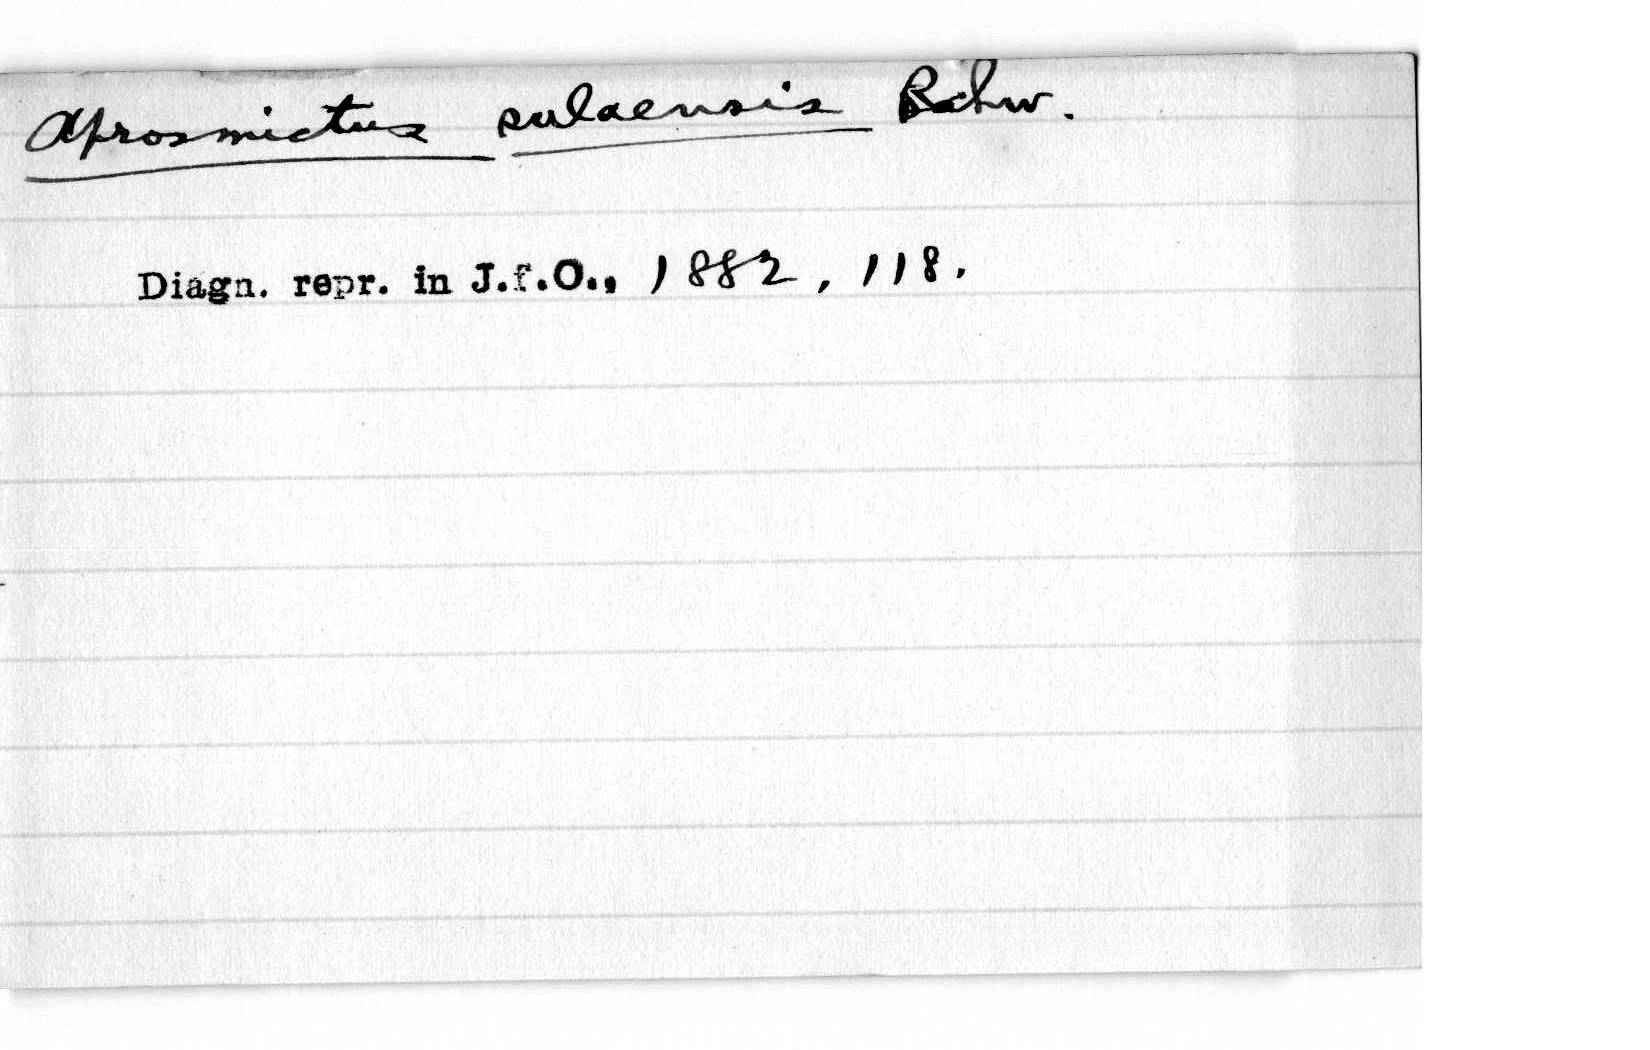 Aprosmictus sulaensis Rchw.
Diagn. repr. in J.f.O., 1882, 118.